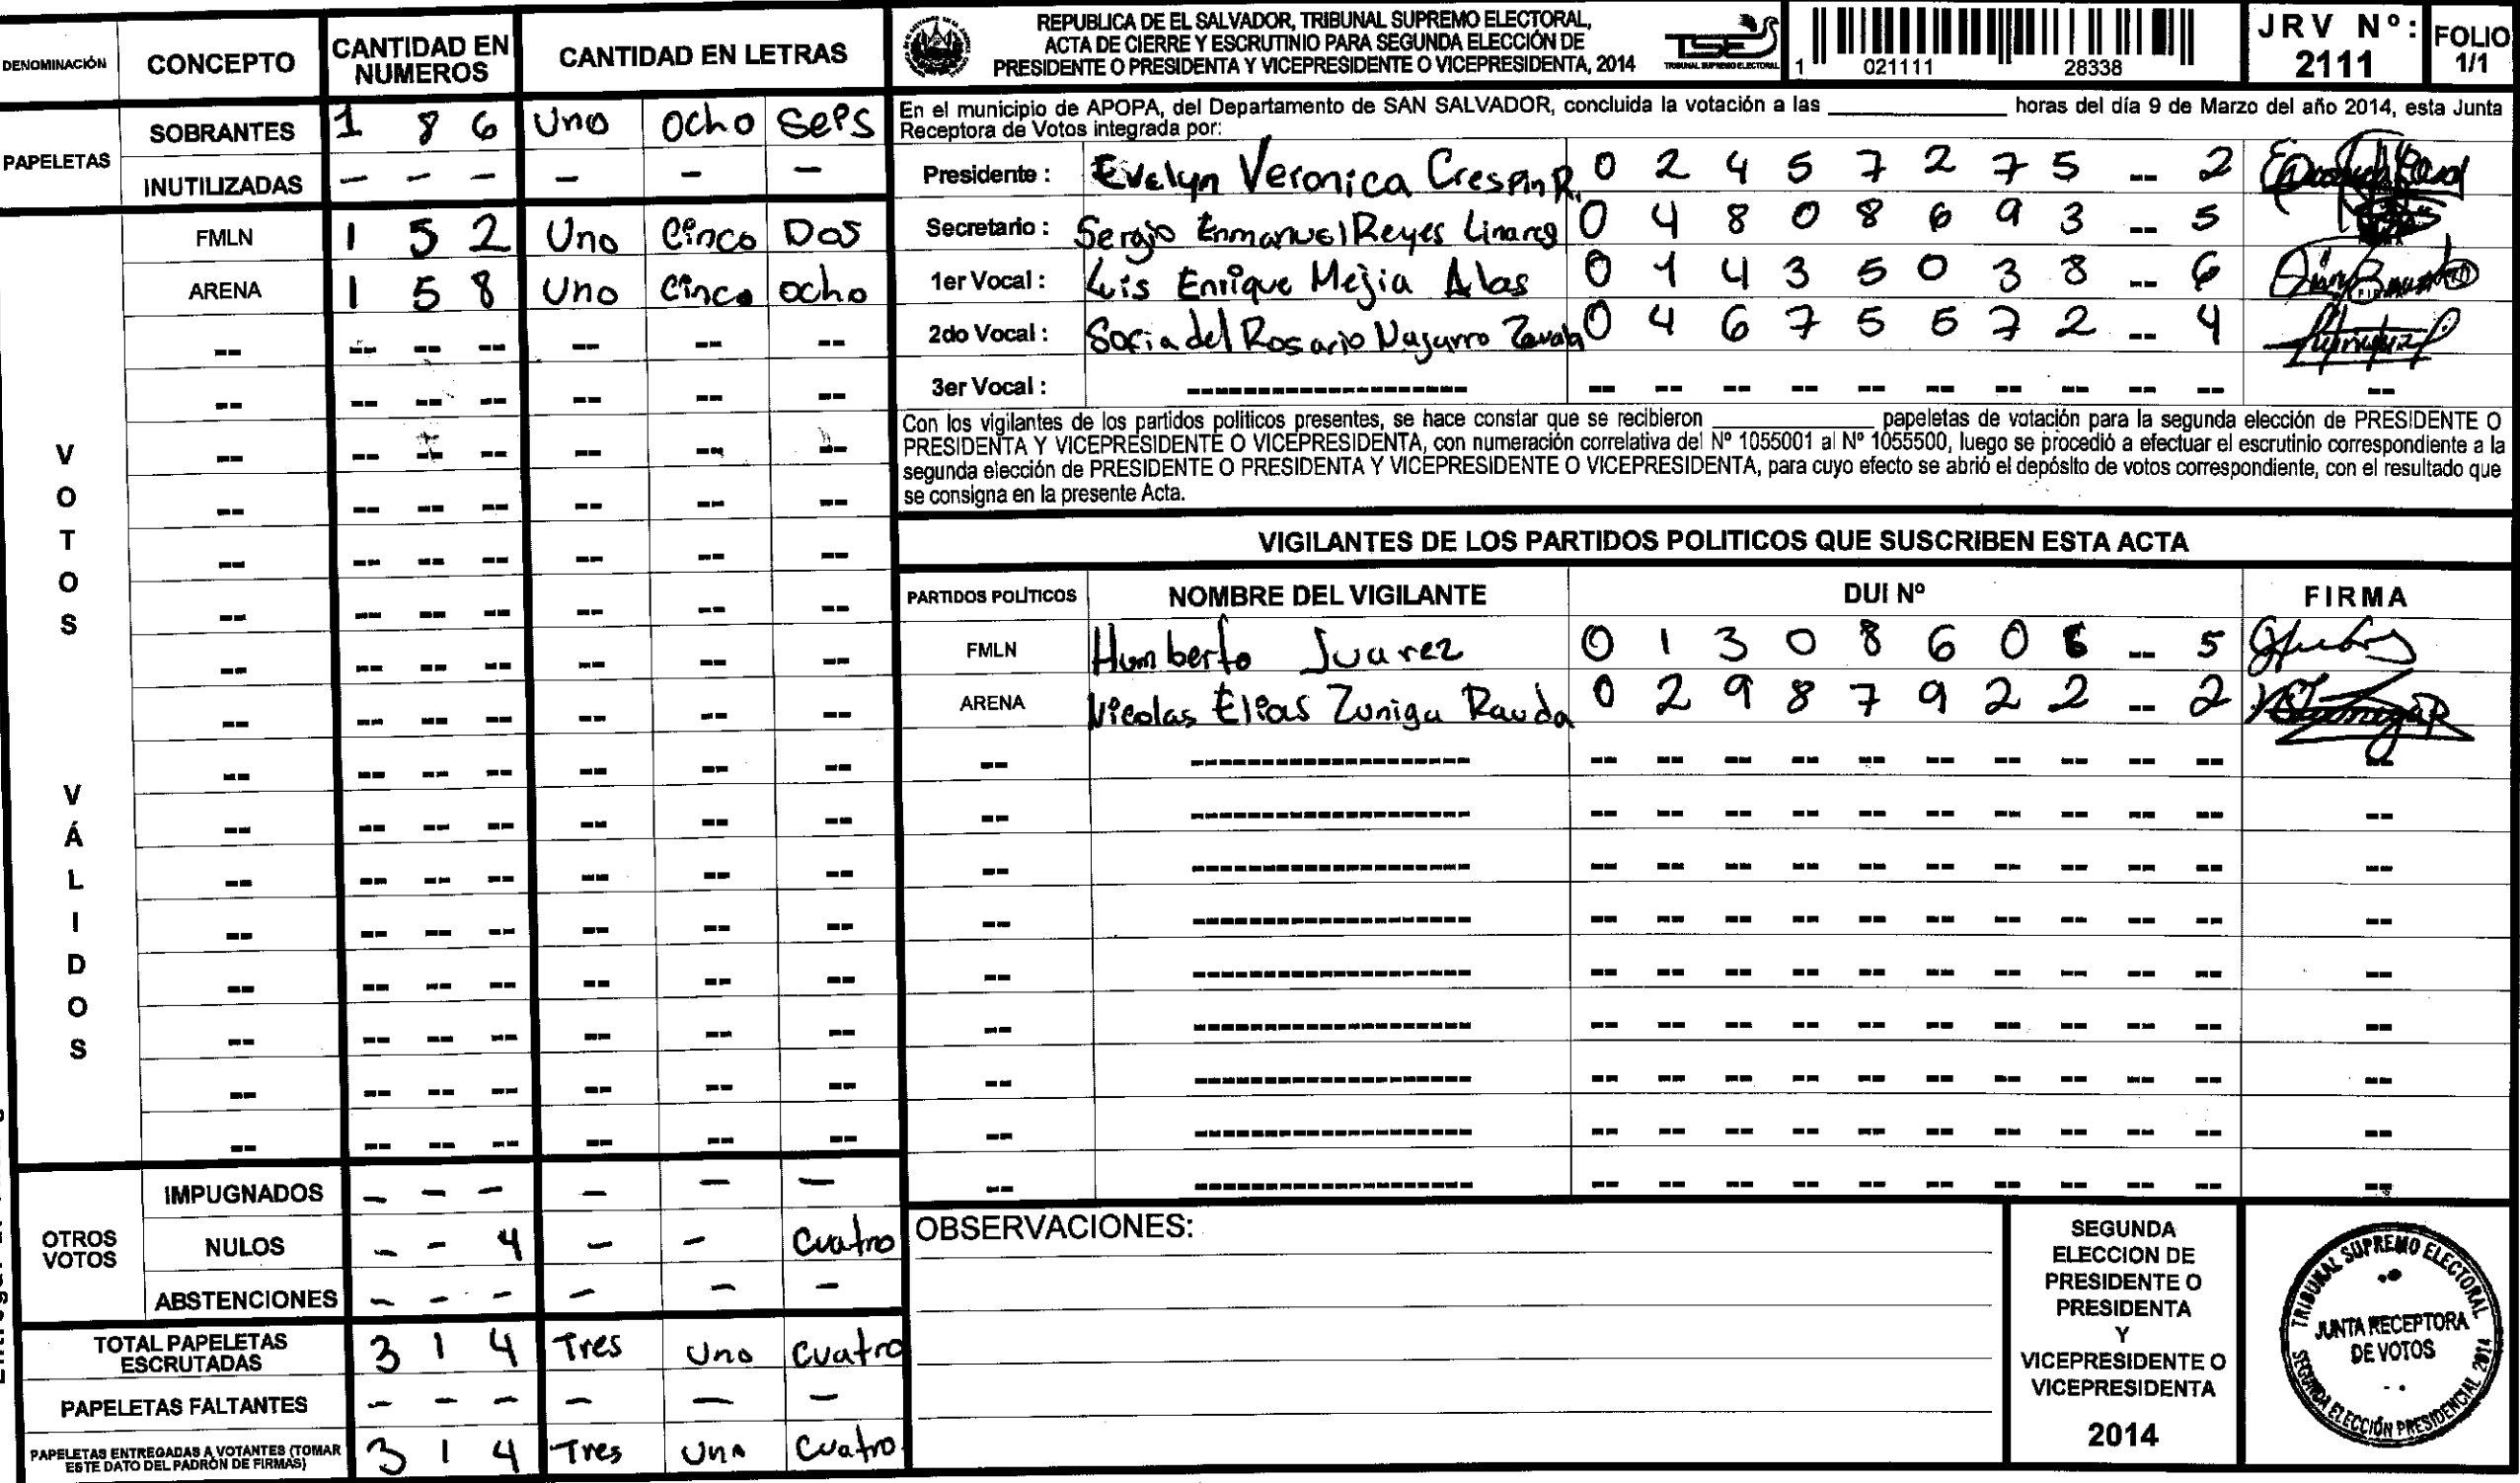 DENOMINACIÓN CONCEPTO CANTIDAD EN NUMEROS CANTIDAD EN LETRAS
PAPELETAS
SOBRANTES 1 8 6 Uno Ocho Seis
INUTILIZADAS - - - - - -
VOTOS VÁLIDOS
FMLN 1 5 2 Uno Cinco Dos
ARENA 1 5 8 Uno Cinco ocho
OTROS VOTOS
IMPUGNADOS - - - - - -
NULOS - - 4 - - Cuatro
ABSTENCIONES - - - - - -
TOTAL PAPELETAS ESCRUTADAS 3 1 4 Tres Uno Cuatro
PAPELETAS FALTANTES - - - - - -
PAPELETAS ENTREGADAS A VOTANTES (TOMAR ESTE DATO DEL PADRÓN DE FIRMAS) 3 1 4 Tres Uno Cuatro
REPUBLICA DE EL SALVADOR, TRIBUNAL SUPREMO ELECTORAL,
ACTA DE CIERRE Y ESCRUTINIO PARA SEGUNDA ELECCIÓN DE
PRESIDENTE O PRESIDENTA Y VICEPRESIDENTE O VICEPRESIDENTA, 2014
TSE
TRIBUNAL SUPREMO ELECTORAL
1 021111 28338
JRV Nº: 2111
FOLIO 1/1
En el municipio de APOPA, del Departamento de SAN SALVADOR, concluida la votación a las ____ horas del día 9 de Marzo del año 2014, esta Junta
Receptora de Votos integrada por:
Presidente : Evelyn Veronica Crespin R. 0 2 4 5 7 2 7 5 -- 2
Secretario : Sergio Enmanuel Reyes Linares 0 4 8 0 8 6 9 3 -- 5
1er Vocal : Luis Enrique Mejia Alas 0 1 4 3 5 0 3 8 -- 6
2do Vocal : Sofia del Rosario Navarro Zavala 0 4 6 7 5 5 7 2 -- 4
3er Vocal : -------------------
Con los vigilantes de los partidos políticos presentes, se hace constar que se recibieron ____ papeletas de votación para la segunda elección de PRESIDENTE O
PRESIDENTA Y VICEPRESIDENTE O VICEPRESIDENTA, con numeración correlativa del Nº 1055001 al Nº 1055500, luego se procedió a efectuar el escrutinio correspondiente a la
segunda elección de PRESIDENTE O PRESIDENTA Y VICEPRESIDENTE O VICEPRESIDENTA, para cuyo efecto se abrió el depósito de votos correspondiente, con el resultado que
se consigna en la presente Acta.
VIGILANTES DE LOS PARTIDOS POLITICOS QUE SUSCRIBEN ESTA ACTA
PARTIDOS POLÍTICOS NOMBRE DEL VIGILANTE DUI Nº FIRMA
FMLN Humberto Juarez 0 1 3 0 8 6 0 6 -- 5
ARENA Nicolas Elias Zuniga Rauda 0 2 9 8 7 9 2 2 -- 2
OBSERVACIONES:
SEGUNDA
ELECCION DE
PRESIDENTE O
PRESIDENTA
Y
VICEPRESIDENTE O
VICEPRESIDENTA
2014
TRIBUNAL SUPREMO ELECTORAL
JUNTA RECEPTORA
DE VOTOS
SEGUNDA ELECCIÓN PRESIDENCIAL 2014